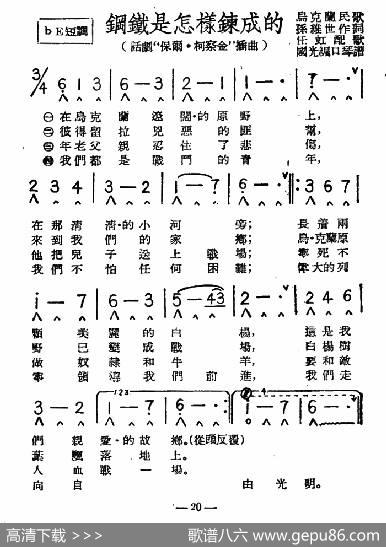 鋼鐵是怎樣鍊成的
bE短調
(話劇"保爾·柯察金"插曲)
烏克蘭民歌
孫維世作詞
任虹配歌
國光編口琴譜
3/4 6 1 3 6 — 7 6 — 3 6 — —
㊀在烏克蘭遼闊·的原野上,
㊁彼得留拉兒惡的匪幫,
㊂年老父親忍住了悲傷,
㊃我們都是戰鬥的青年,
2 3 4 3 — 2 3 — 4 i — 7 6 — — 3 6 7
在那清清·的小河旁;長着兩
來到我們的家鄉;烏·克蘭原
他把兒子送上戰場;寧死不
我們不怕任何困難;偉大的列
i — 7 6 — 3 i — 7 5 — 43 2 — — 6 — —
顆美麗的白楊,這是我
野已變成戰場,白楊樹
做奴隸和牛羊,要和敵
寧領導我們前進,我們走
3 — 2 i — 7 6 — — i — 7 6 — —
們親愛·的故鄉。(從頭反覆)
葉飄落地上。
人血戰一場。
向自由光明。
— 20 —
高清下载 >>>
歌谱八六 www.gepu86.com